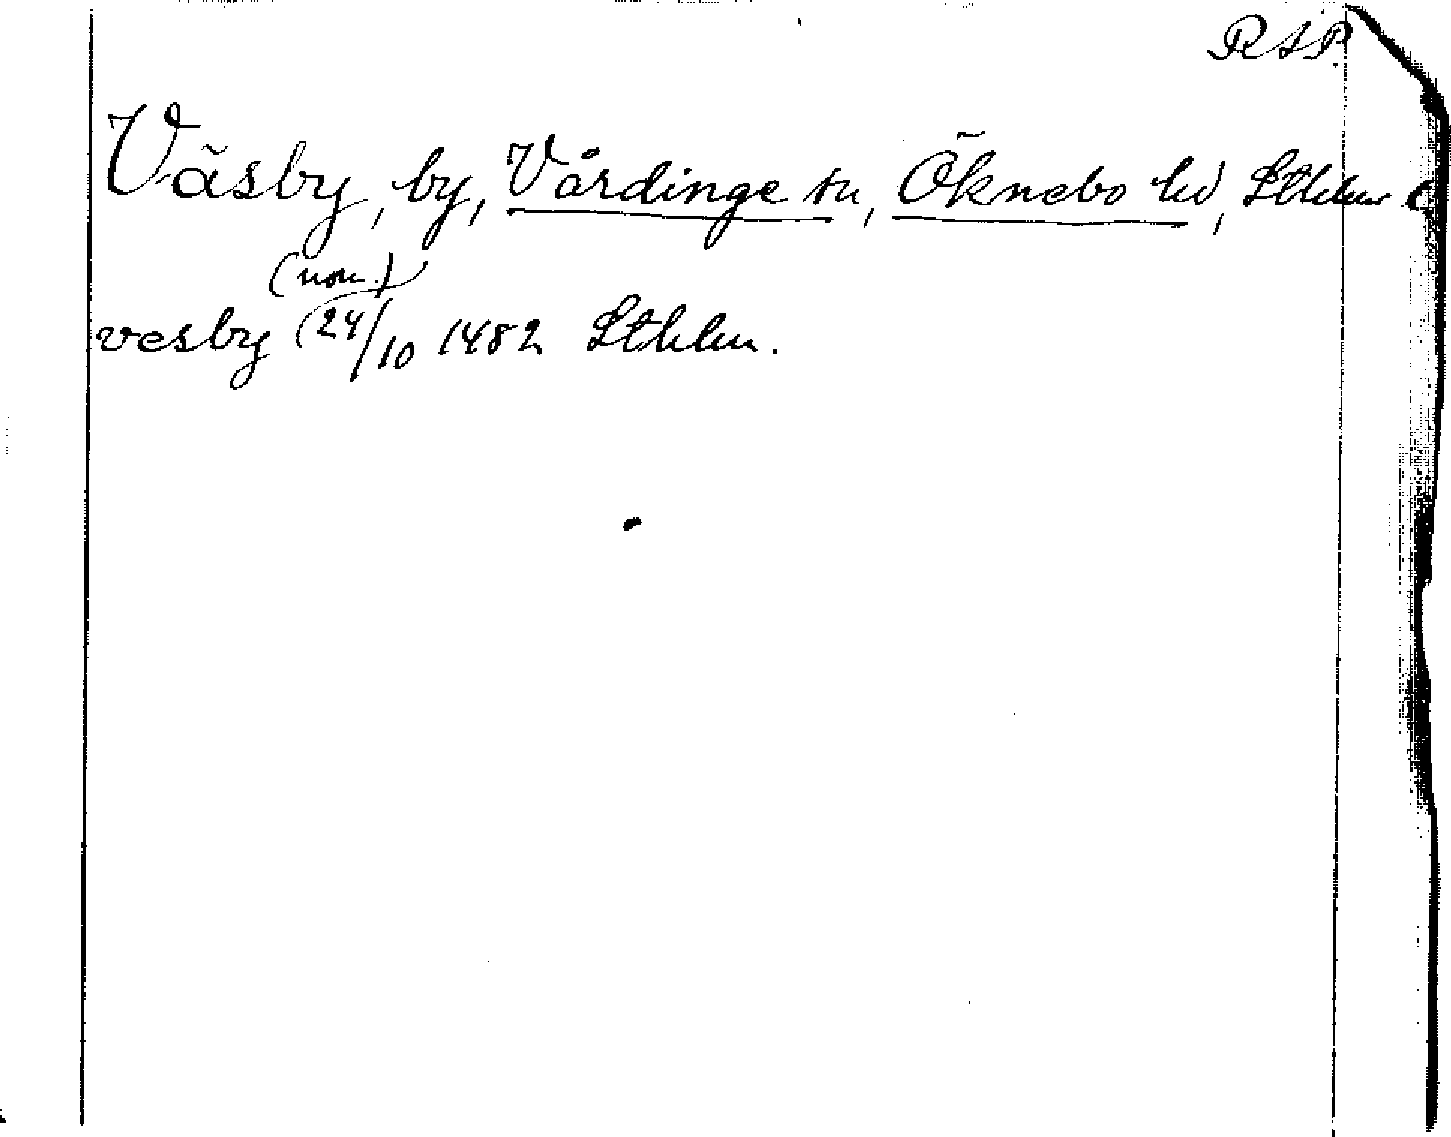 RAP.
Väsby, by, Vårdinge sn, Öknebo hd, Sthlm
(nom.)
vesby 24/10 1482 Sthlm.